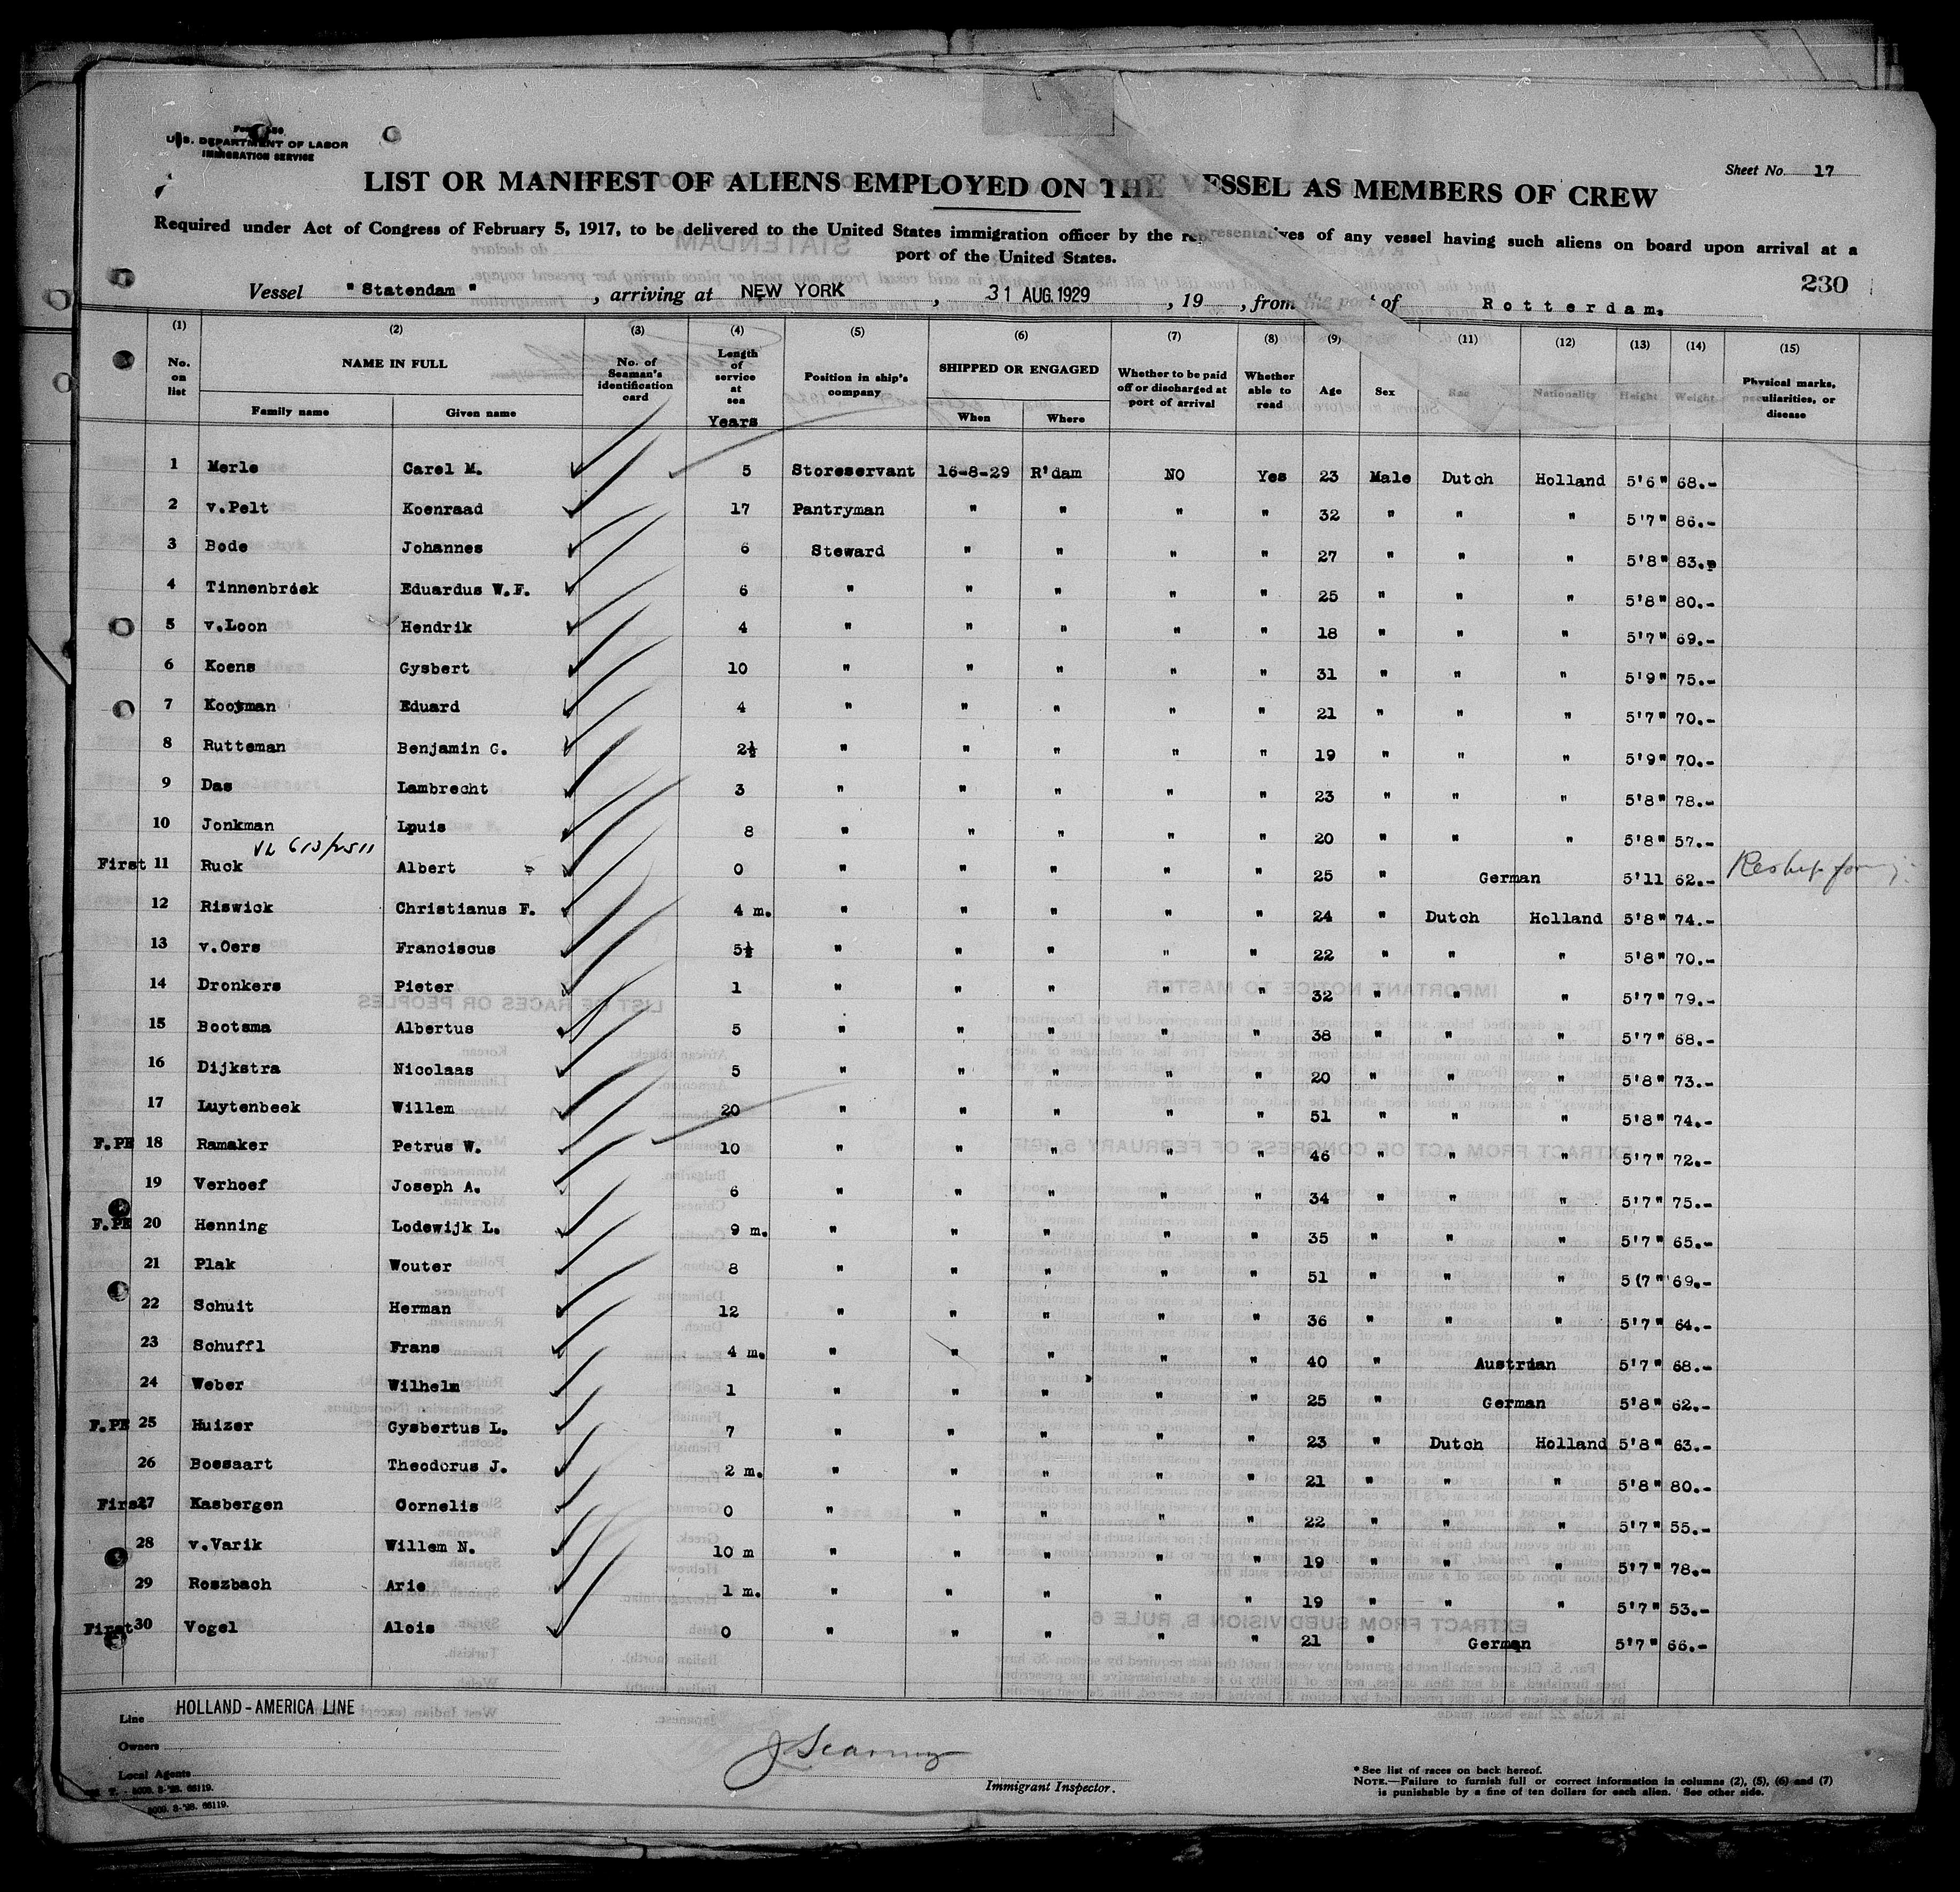 U.S. DEPARTMENT OF LABOR
IMMIGRATION SERVICE
Sheet No. 17
LIST OR MANIFEST OF ALIENS EMPLOYED ON THE VESSEL AS MEMBERS OF CREW
Required under Act of Congress of February 5, 1917, to be delivered to the United States immigration officer by the representatives of any vessel having such aliens on board upon arrival at a
port of the United States.
230
Vessel "Statendam", arriving at NEW YORK, 31 AUG. 1929, 19 , from the port of Rotterdam.
(1) (2) (3) (4) (5) (6) (7) (8) (9) (11) (12) (13) (14) (15)
No. on list NAME IN FULL Family name Given name No. of Seaman's identification card Length of service at sea Years Position in ship's company SHIPPED OR ENGAGED When Where Whether to be paid off or discharged at port of arrival Whether able to read Age Sex Race Nationality Height Weight Physical marks, peculiarities, or disease
1 Merle Carel M. 5 Storeservant 16-8-29 R'dam NO Yes 23 Male Dutch Holland 5'6" 68.-
2 v.Pelt Koenraad 17 Pantryman " " " " 32 " " " 5'7" 86.-
3 Bode Johannes 6 Steward " " " " 27 " " " 5'8" 83.-
4 Tinnenbroek Eduardus W.F. 6 " " " " " 25 " " " 5'8" 80.-
5 v.Loon Hendrik 4 " " " " " 18 " " " 5'7" 69.-
6 Koens Gysbert 10 " " " " " 31 " " " 5'9" 75.-
7 Kooyman Eduard 4 " " " " " 21 " " " 5'7" 70.-
8 Rutteman Benjamin G. 2½ " " " " " 19 " " " 5'9" 70.-
9 Das Lambrecht 3 " " " " " 23 " " " 5'8" 78.-
10 Jonkman Lpuis 8 " " " " " 20 " " " 5'8" 57.-
First 11 Ruck Albert 0 " " " " " 25 " German 5'11 62.-
12 Riswick Christianus F. 4 m. " " " " " 24 " Dutch Holland 5'8" 74.-
13 v.Oers Franciscus 5½ " " " " " 22 " " " 5'8" 70.-
14 Dronkers Pieter 1 " " " " " 32 " " " 5'7" 79.-
15 Bootsma Albertus 5 " " " " " 38 " " " 5'7" 68.-
16 Dijkstra Nicolaas 5 " " " " " 20 " " " 5'8" 73.-
17 Luytenbeek Willem 20 " " " " " 51 " " " 5'8" 74.-
F.PE 18 Ramaker Petrus W. 10 " " " " " 46 " " " 5'7" 72.-
19 Verhoef Joseph A. 6 " " " " " 34 " " " 5'7" 75.-
F.PE 20 Henning Lodewijk L. 9 m. " " " " " 35 " " " 5'7" 65.-
21 Plak Wouter 8 " " " " " 51 " " " 5(7" 69.-
22 Schuit Herman 12 " " " " " 36 " " " 5'7" 64.-
23 Schuffl Frans 4 m. " " " " " 40 " Austrian 5'7" 68.-
24 Weber Wilhelm 1 " " " " " 25 " German 5'8" 62.-
F.PE 25 Huizer Gysbertus L. 7 " " " " " 23 " Dutch Holland 5'8" 63.-
26 Boessaart Theodorus J. 2 m. " " " " " 21 " " " 5'8" 80.-
First 27 Kasbergen Cornelis 0 " " " " " 22 " " " 5'7" 55.-
28 v.Varik Willem N. 10 m " " " " " 19 " " " 5'7" 78.-
29 Roszbach Arie 1 m. " " " " " 19 " " " 5'7" 53.-
First 30 Vogel Alois 0 " " " " " 21 " German 5'7" 66.-
Line HOLLAND-AMERICA LINE
Owners
Local Agents
Immigrant Inspector.
* See list of races on back hereof.
NOTE.—Failure to furnish full or correct information in columns (2), (5), (6) and (7)
is punishable by a fine of ten dollars for each alien. See other side.